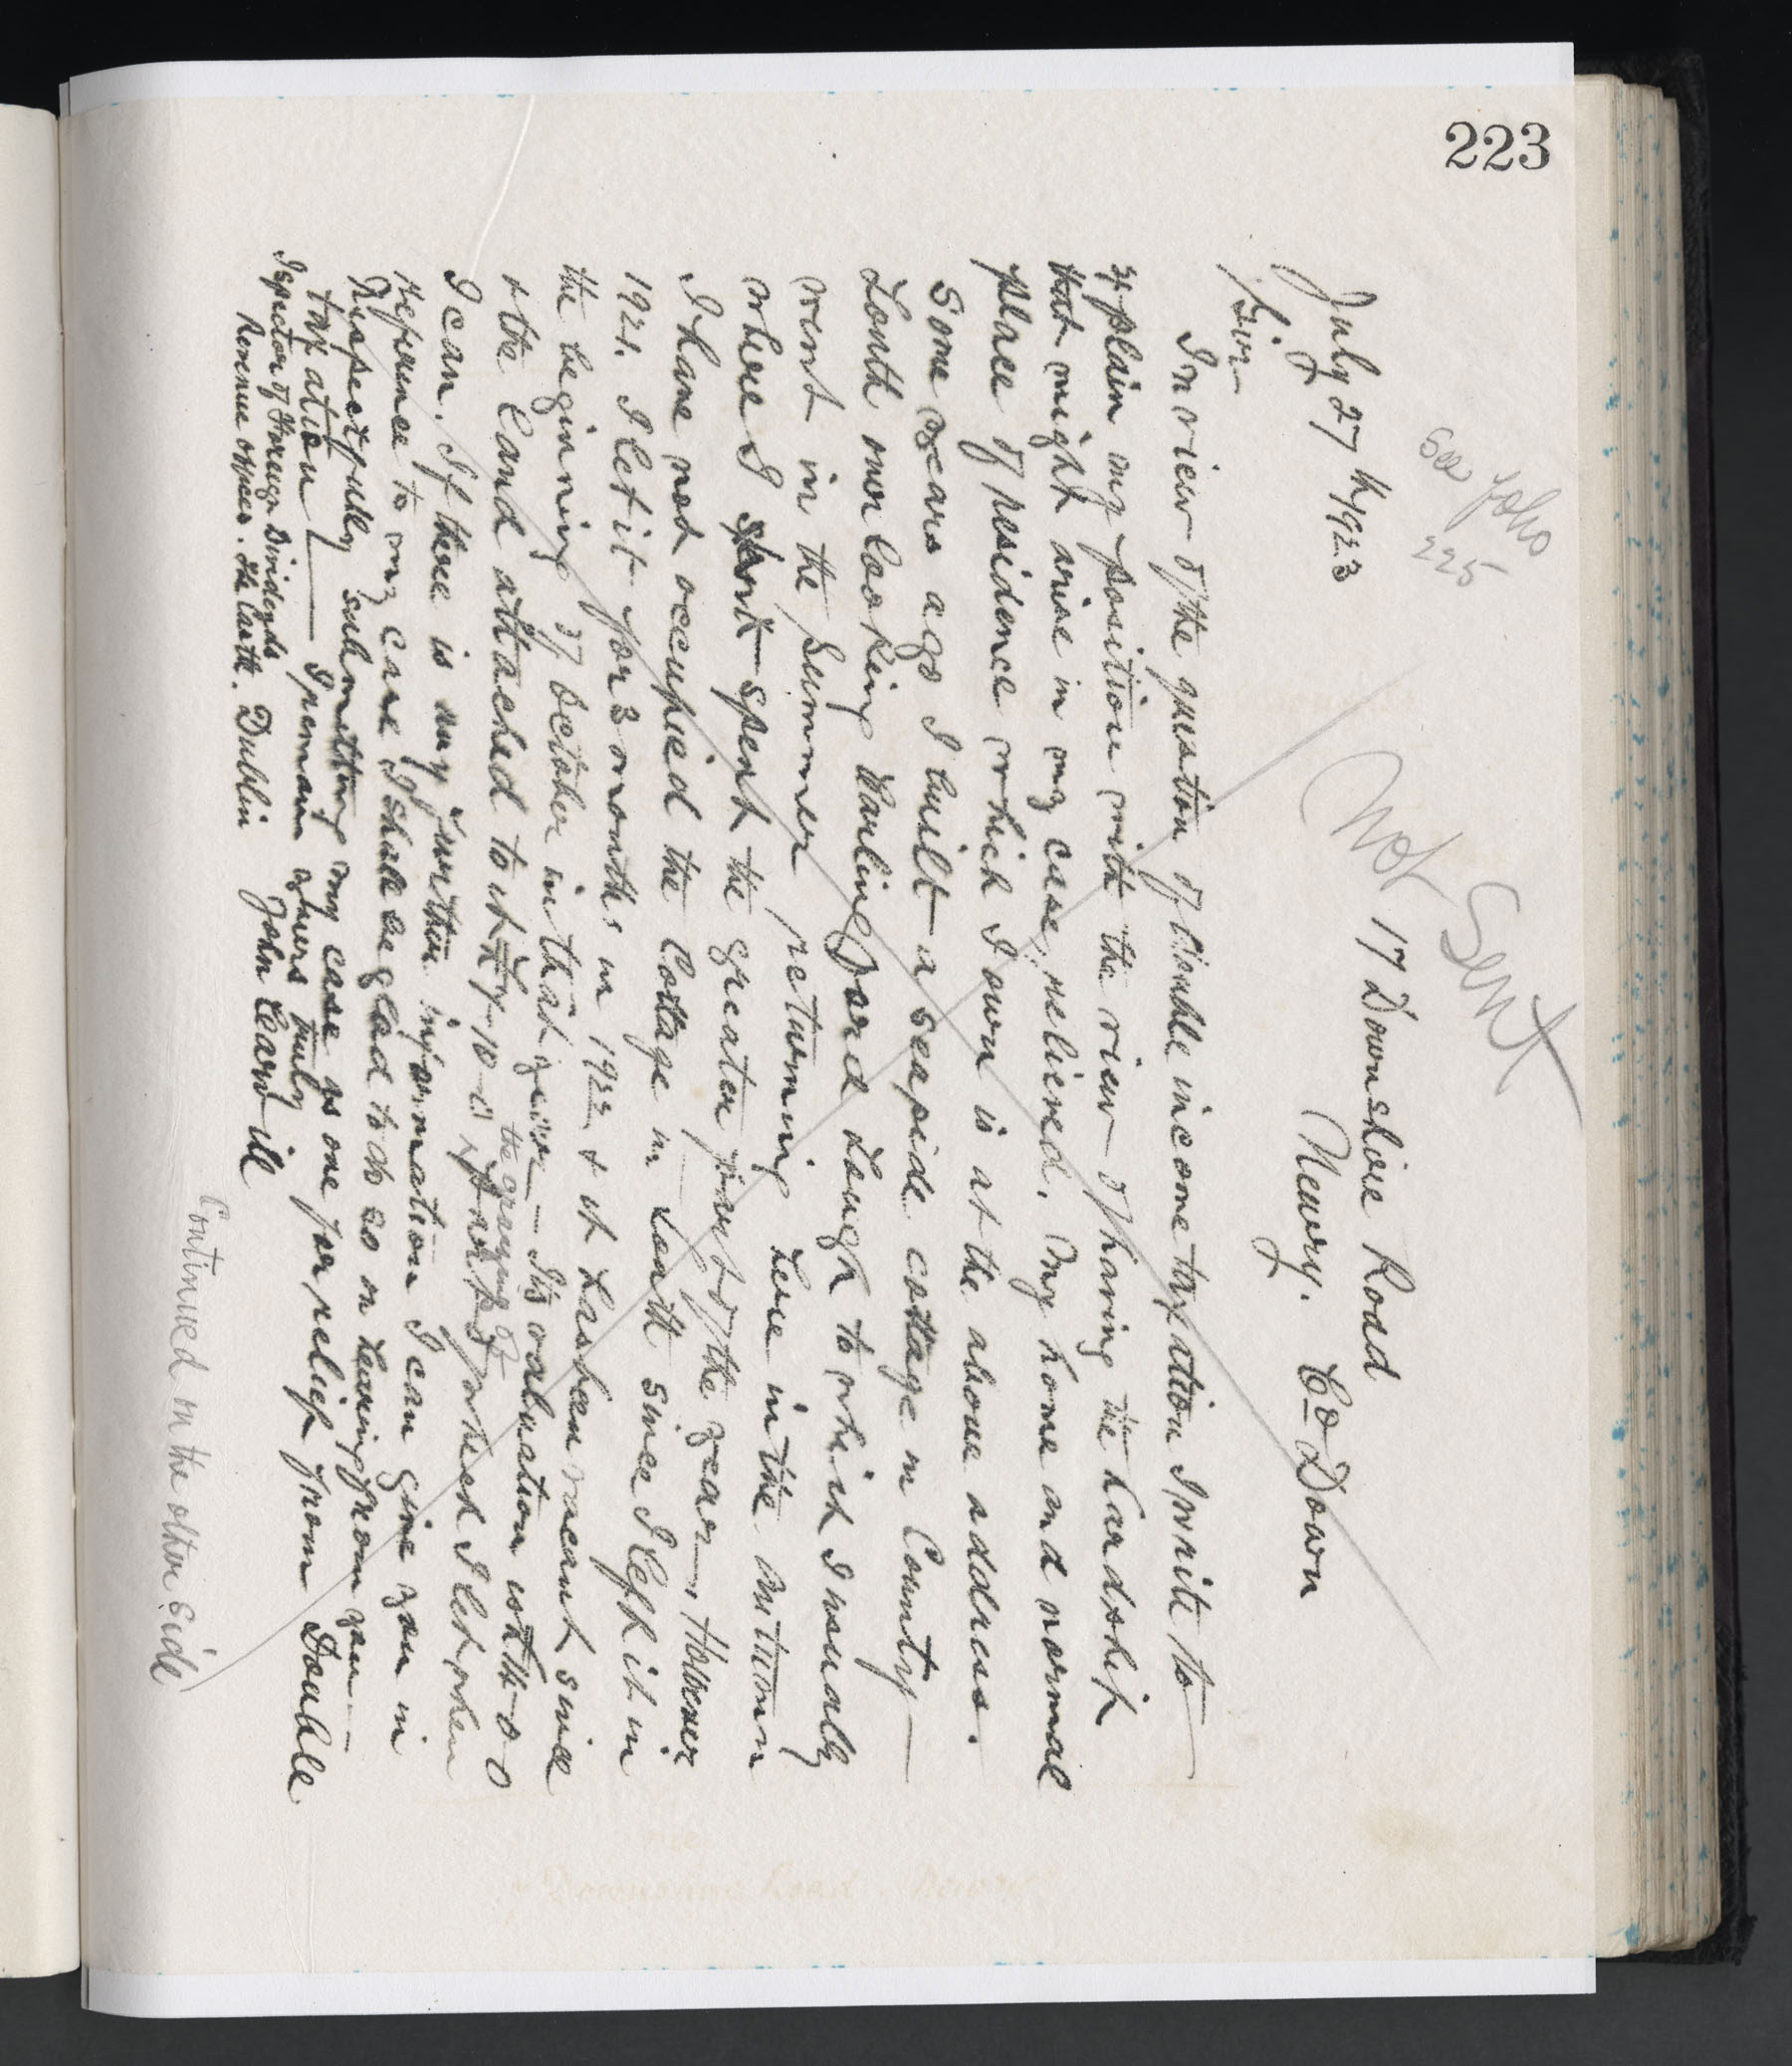 223
see folio
225
Not Sent
17 Downshire Road
July 27th 1923 Newry. Co Down
Sir
In view of the question of double income taxation I write to
explain my position with the view of having the hardship
that might arise in my case, relieved. My home and normal
place of residence which I own is at the above address.
Some years ago I built a seaside cottage in County
Louth overlooking Carlingford Lough to which I usually
went in the summer returning here in the autumn
where I spent the greater part of the year. However
I have not occupied the Cottage in Louth since I left it in
1921. I let it for 3 months in 1922 & it has been vacant since
the beginning of October in that year — Its valuation with
& the land attached to it is £7-10-0 the grazing of which I let when
I can. If there is any further information I can give you in
reference to my case I shall be glad to do so on hearing from you —
Respectfully submitting my case as one for relief from Double
taxation — I remain yours truly
Ispector of Foreign Dividends John Leard ill
Revenue offices. The Castle. Dublin
Continued on the other side